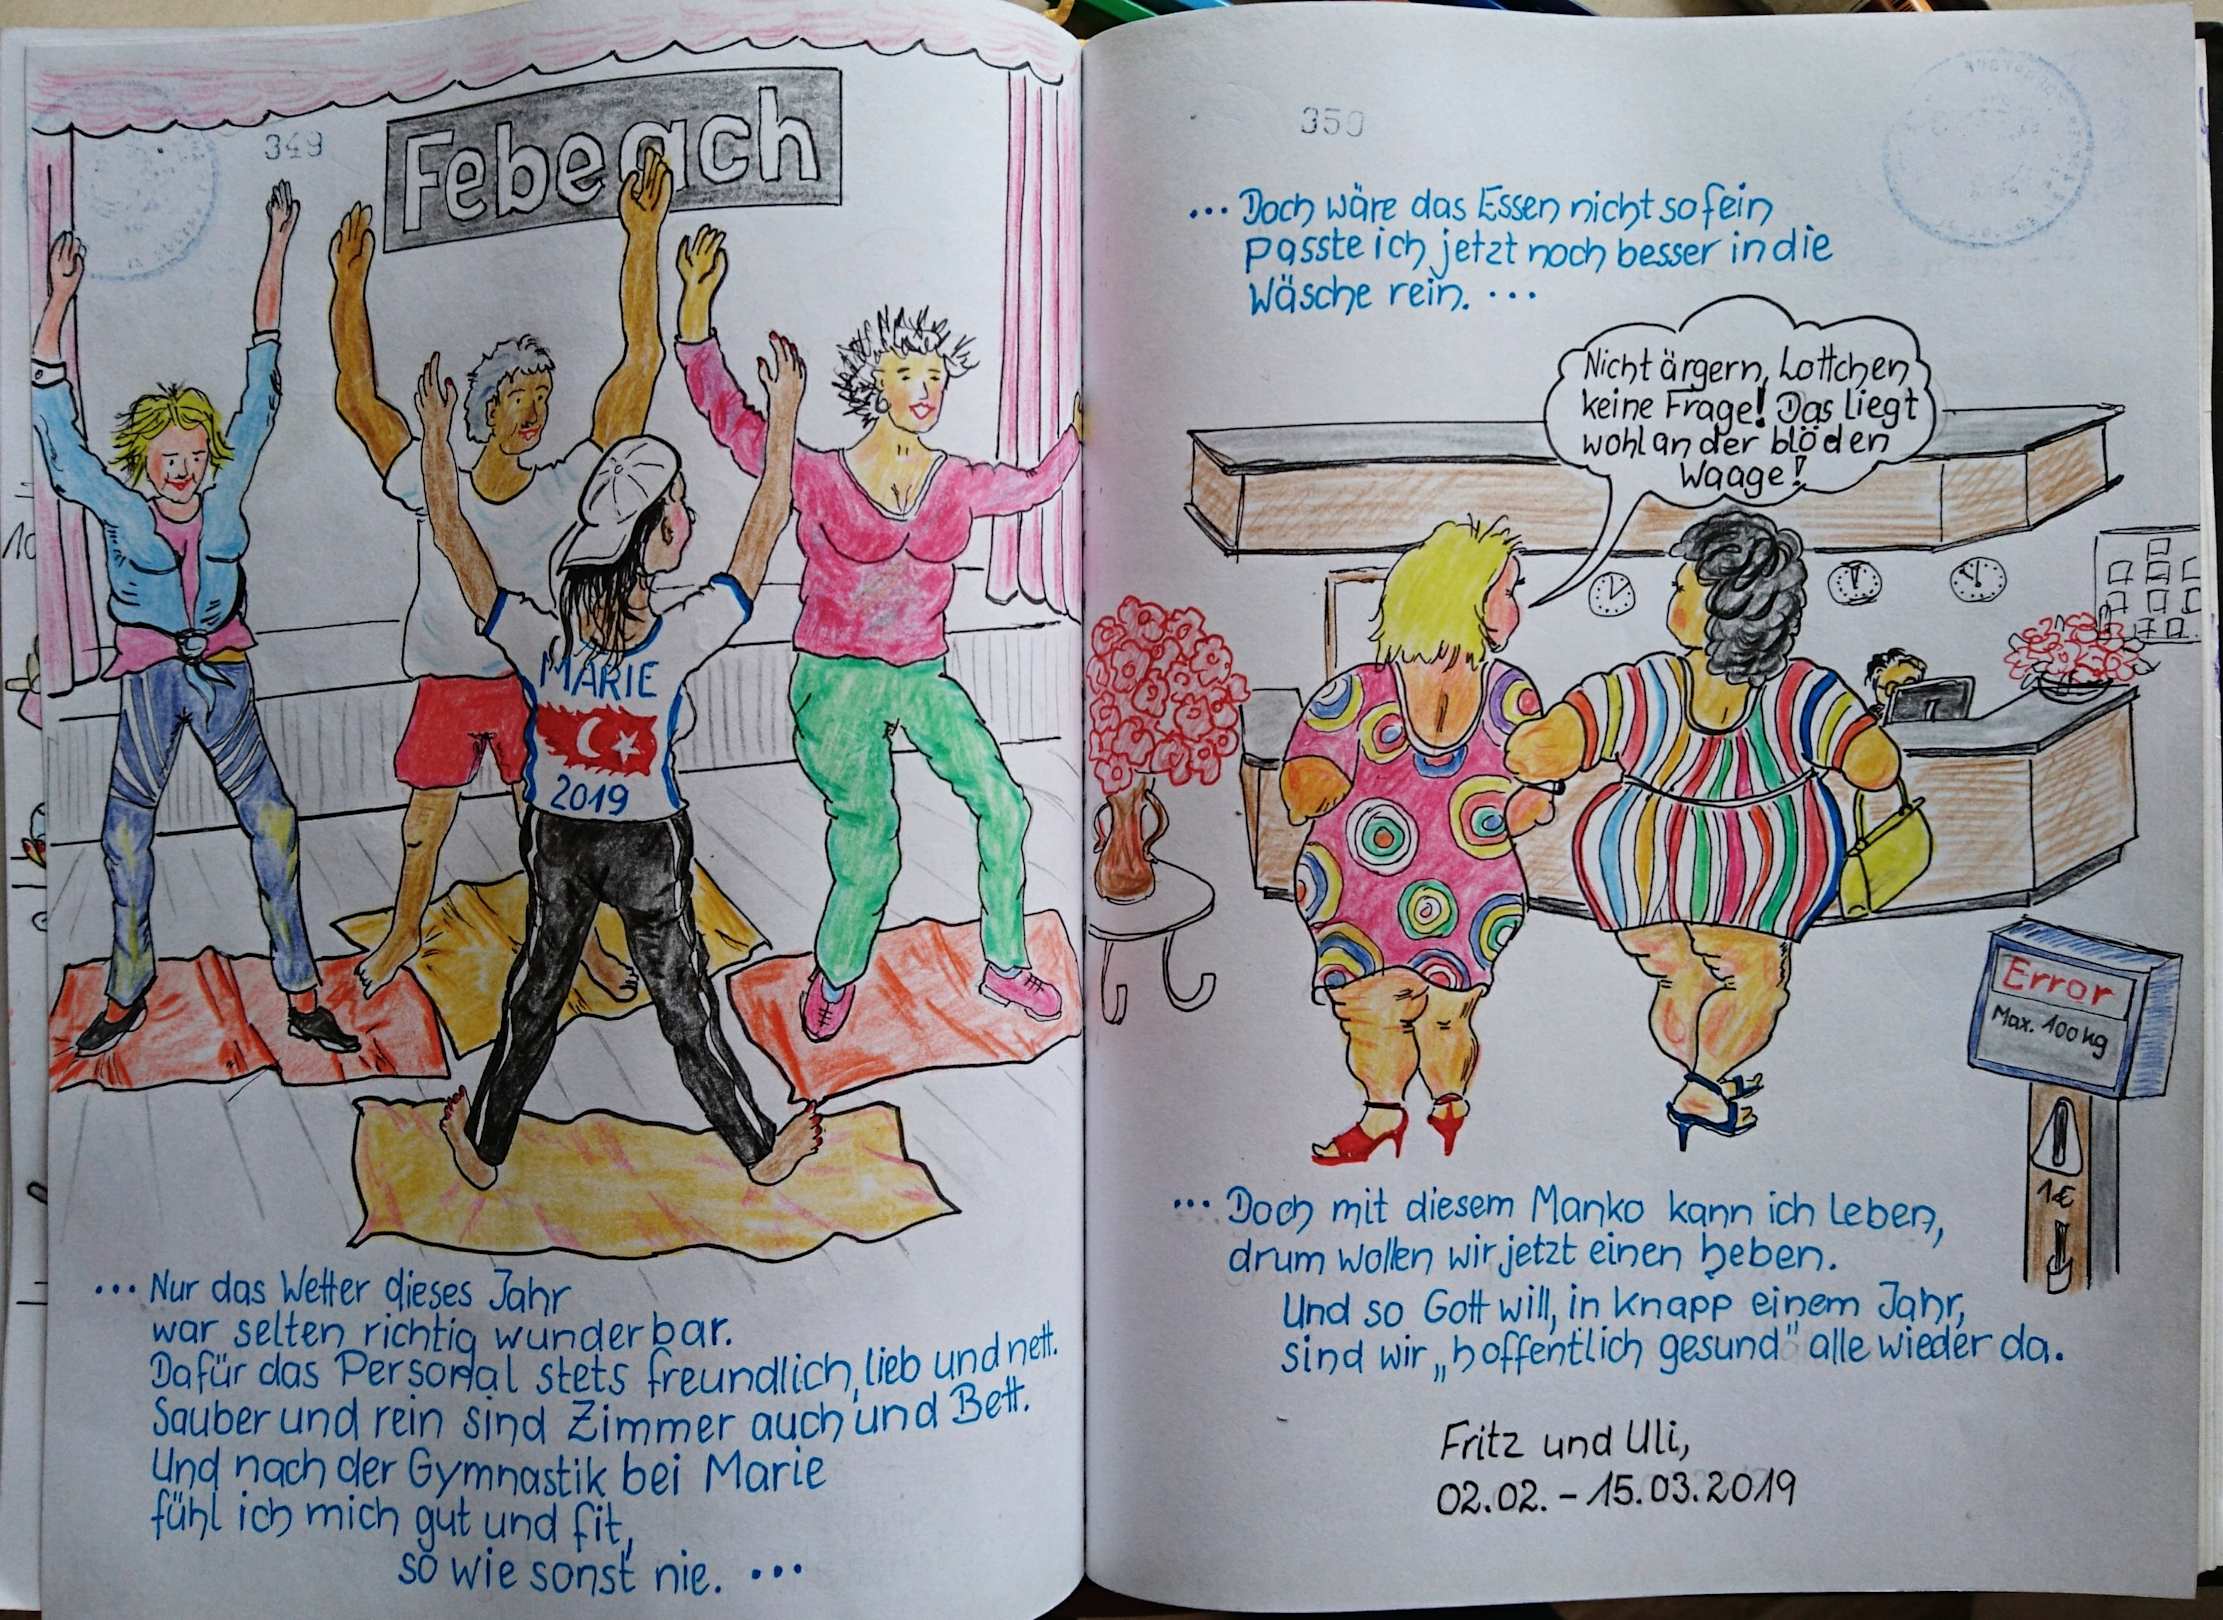 349
Febeach
MARIE
2019
... Nur das Wetter dieses Jahr
war selten richtig wunderbar.
Dafür das Personal stets freundlich, lieb und nett.
Sauber und rein sind Zimmer auch und Bett.
Und nach der Gymnastik bei Marie
fühl ich mich gut und fit,
so wie sonst nie. ...
350
... Doch wäre das Essen nicht so fein
passte ich jetzt noch besser in die
Wäsche rein. ...
Nicht ärgern, Lottchen
keine Frage! Das liegt
wohl an der blöden
Waage!
Error
Max. 100 kg
1€
... Doch mit diesem Manko kann ich leben,
drum wollen wir jetzt einen heben.
Und so Gott will, in knapp einem Jahr,
sind wir „hoffentlich gesund" alle wieder da.
Fritz und Uli,
02.02. - 15.03.2019